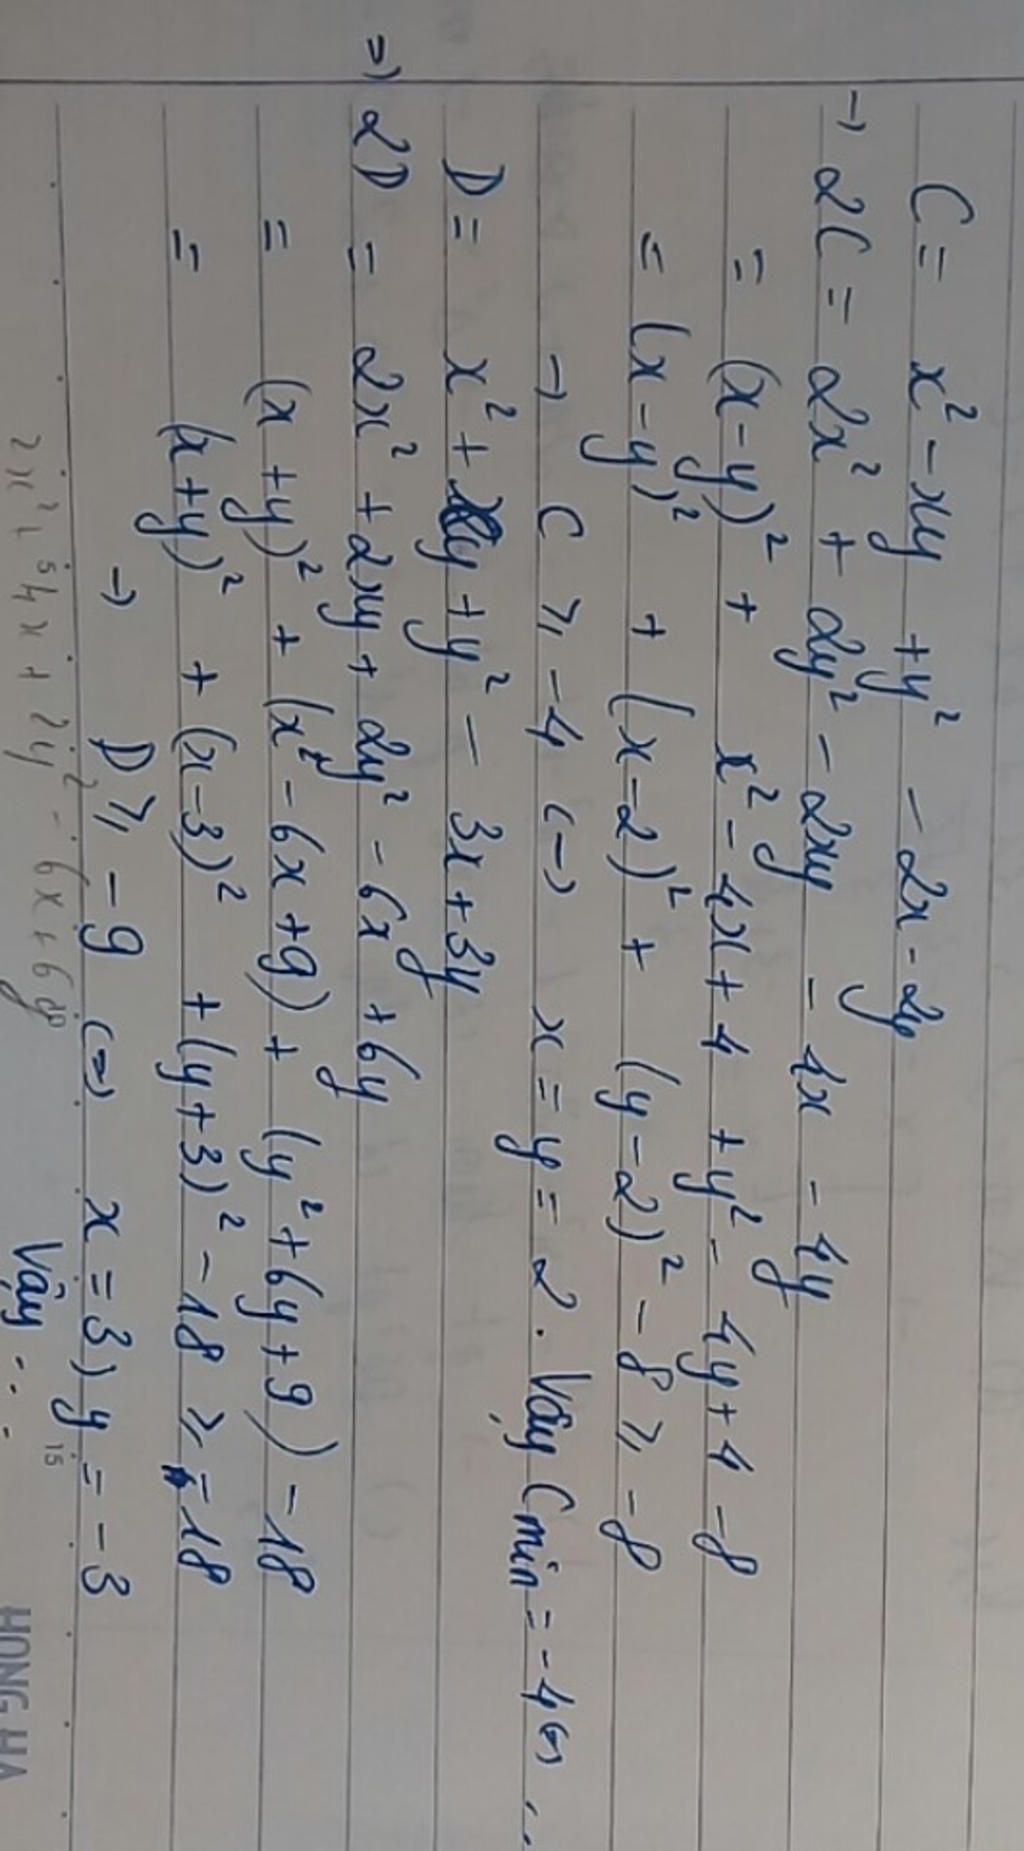 C = x² - xy + y² - 2x - 2y
→ 2C = 2x² + 2y² - 2xy - 4x - 4y
= (x-y)² + x² - 4x + 4 + y² - 4y + 4 - 8
= (x-y)² + (x-2)² + (y-2)² - 8 ⩾ -8
→ C ⩾ -4 (→) x = y = 2. Vậy Cmin = -4 (=) ...
D = x² + xy + y² - 3x + 3y
=) 2D = 2x² + 2xy + 2y² - 6x + 6y
= (x+y)² + (x² - 6x + 9) + (y² + 6y + 9) - 18
= (x+y)² + (x-3)² + (y+3)² - 18 ⩾ -18
→ D ⩾ -9 (=) x = 3) y = -3
Vậy ...
15
HONG HA